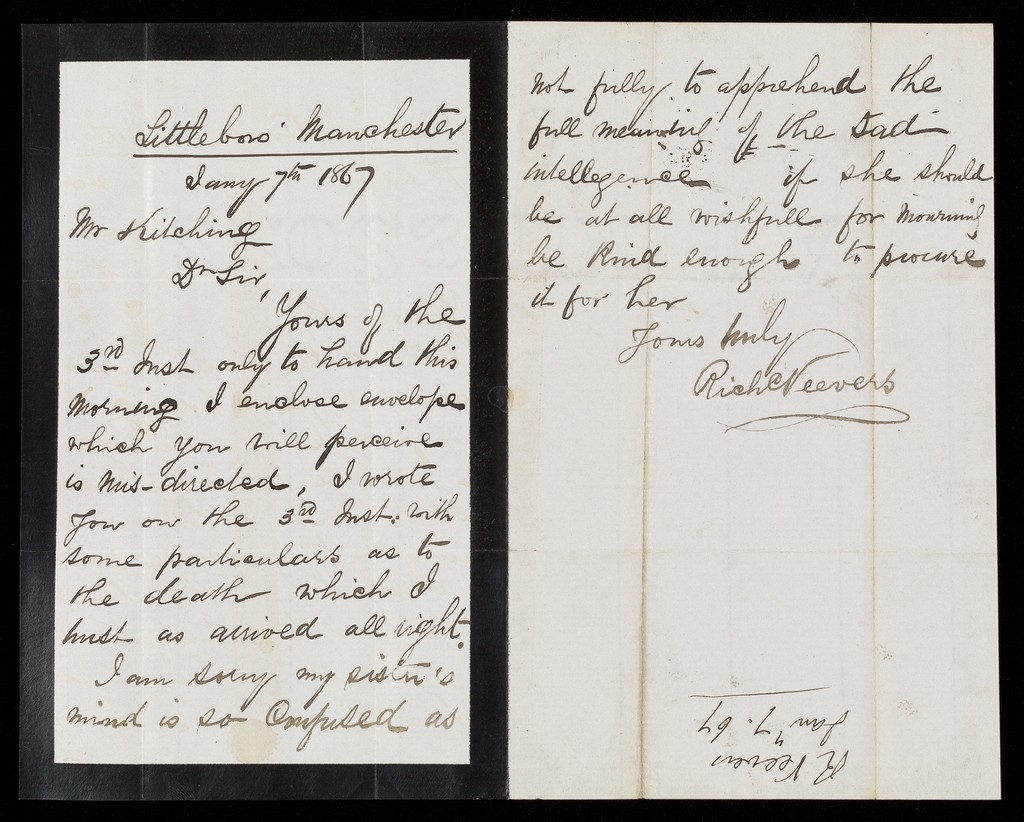 Littleboro' Manchester
Jany 7th 1867
Mr Kitching
Dr Sir,
Yours of the
3rd Inst only to hand this
Morning I enclose envelope
which you will perceive
is mis-directed, I wrote
you on the 3rd Inst. with
some particulars as to
the death which I
trust as arrived all right.
I am sorry my sister's
mind is so Confused as
not fully to apprehend the
full meaning of the Sad
intellegence if she should
be at all wishfull for Mourning
be Kind enough to procure
it for her
Yours truly
Richd Veevers
R Veevers
Jany 7. 67